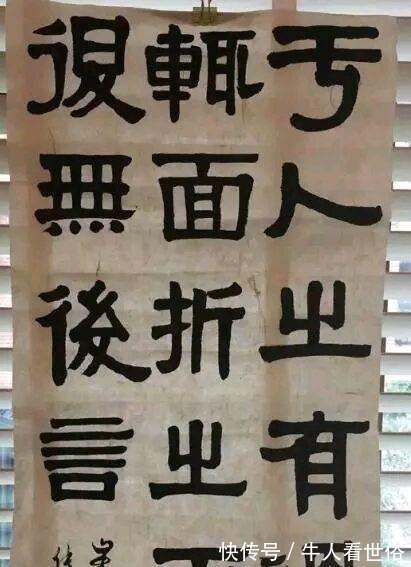 于人之有
輒面折之
復無後言
快传号 / 牛人看世俗